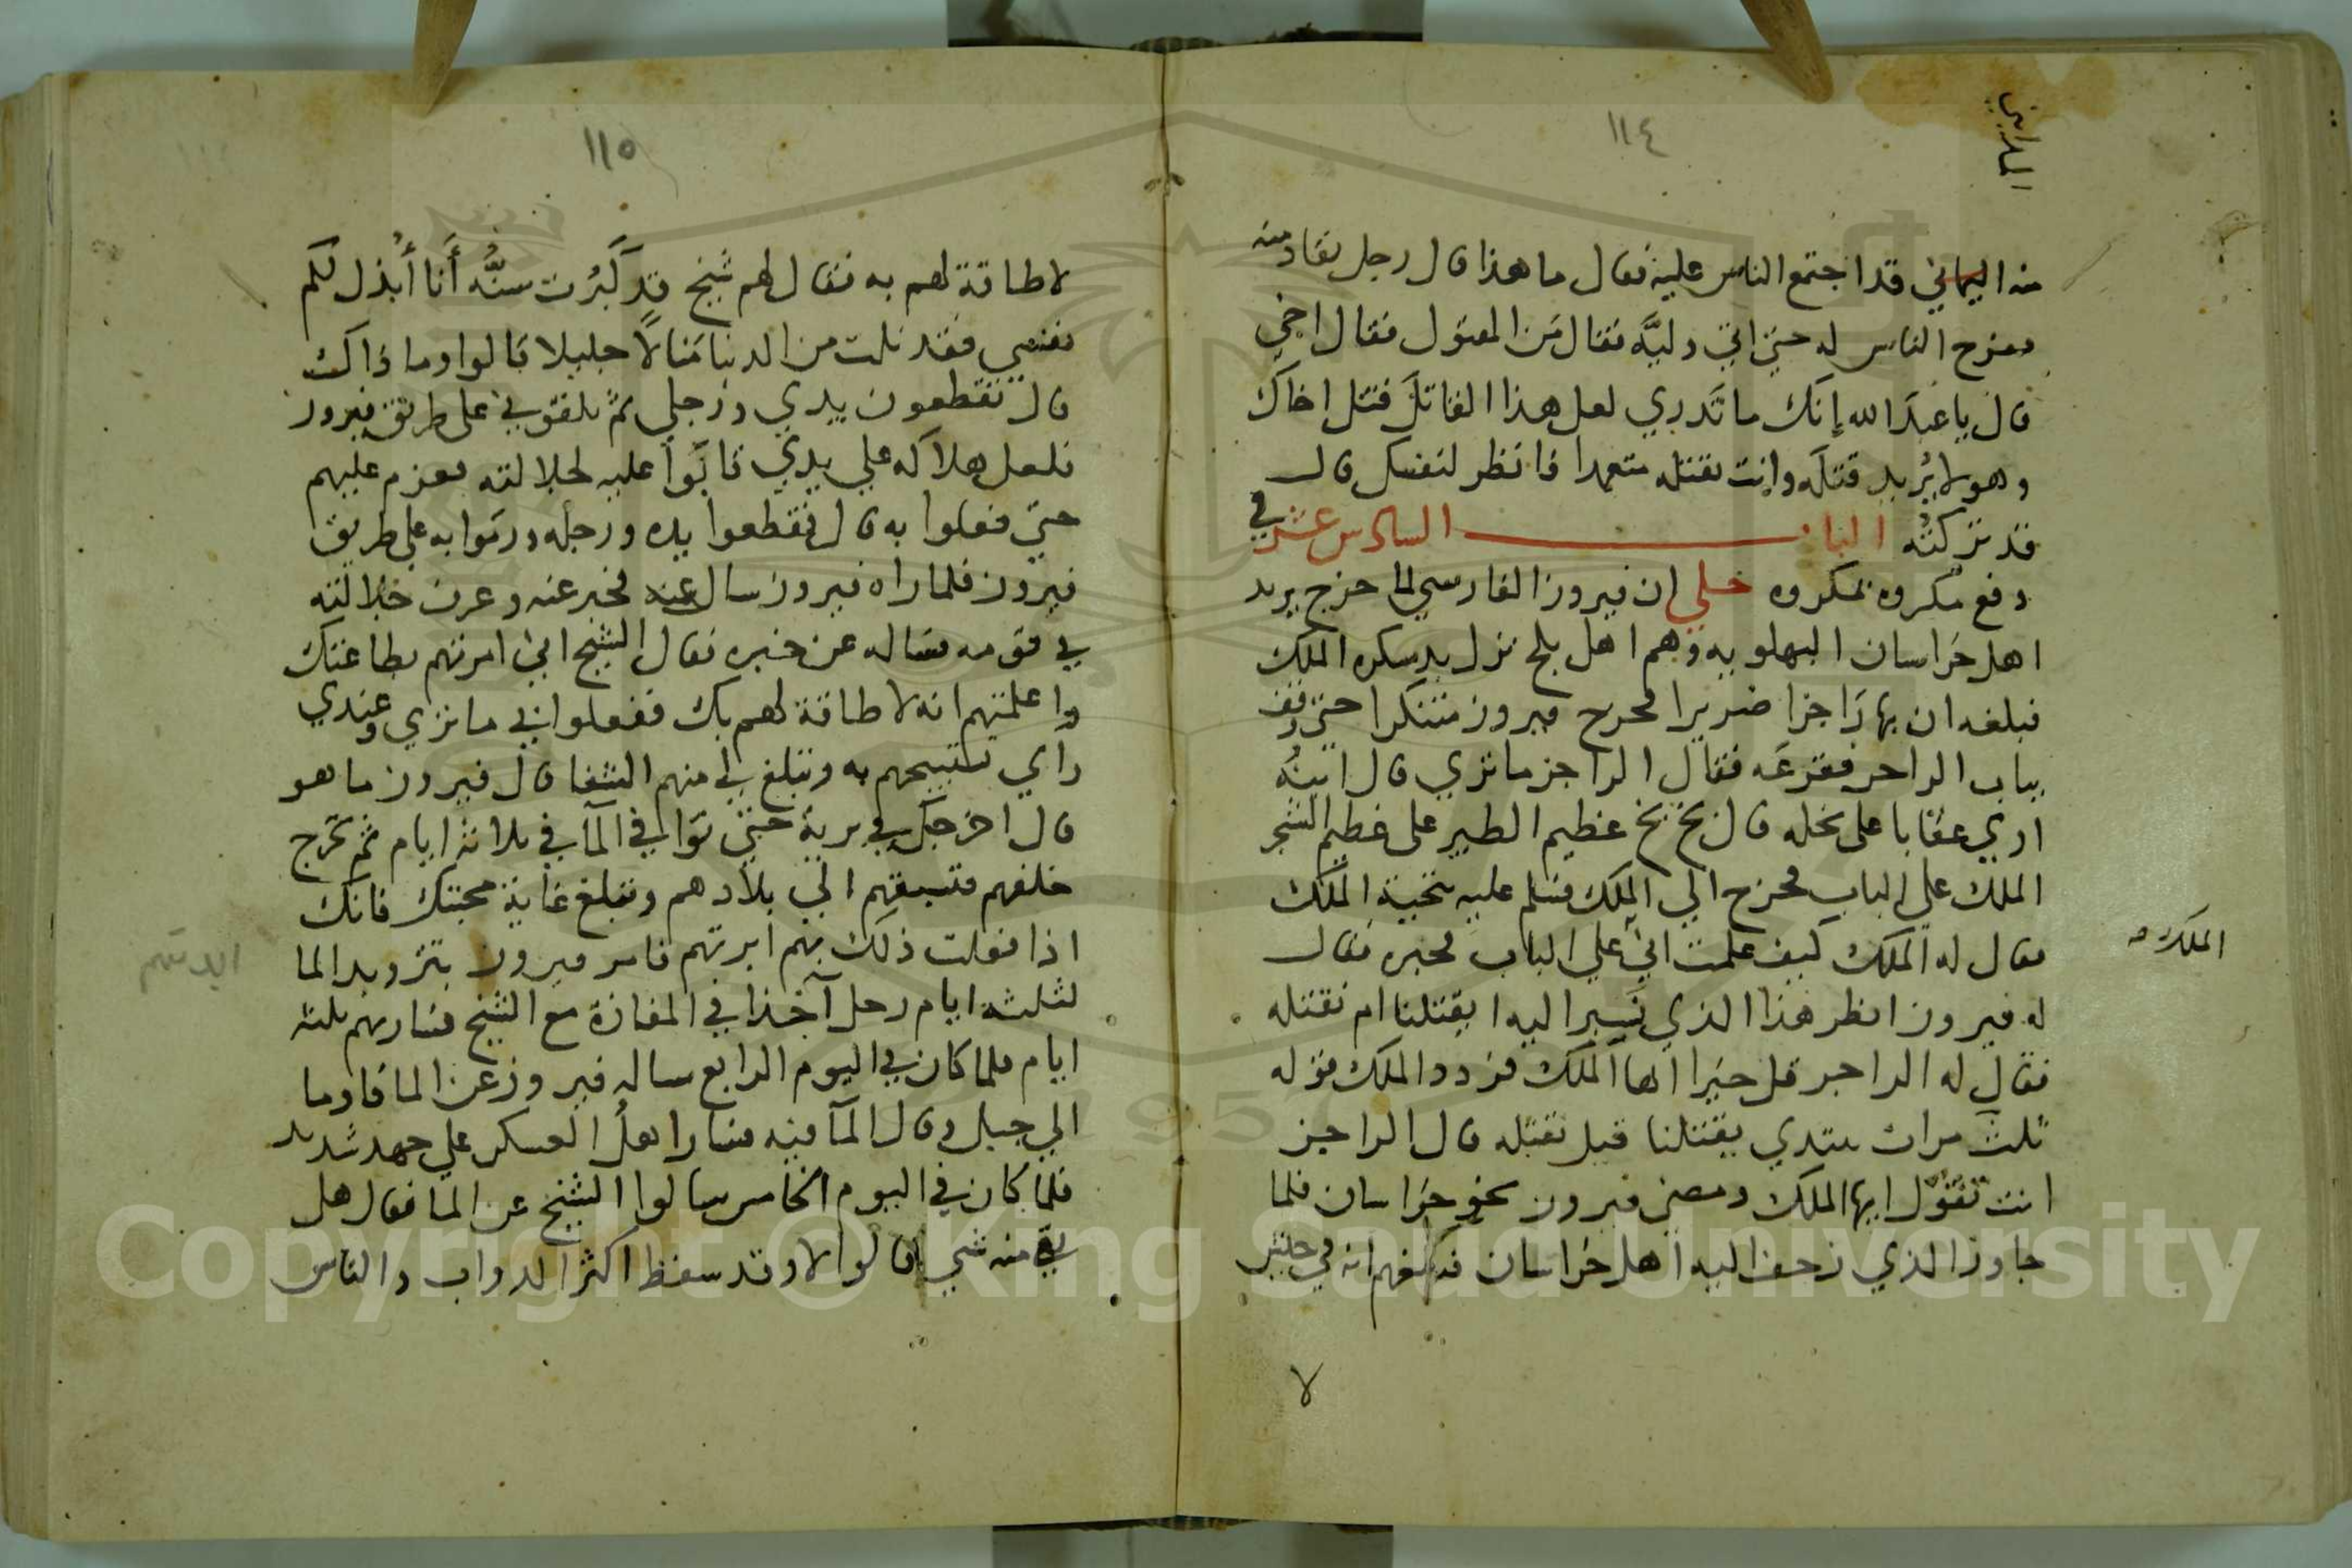 ١١٤
منه اليماني قد اجتمع الناس عليه فقال ما هذا قال رجل يقاد منه
ففرج الناس له حتي اتي وليَّه فقال مَن المقتول فقال اخي
قال يا عبدَ الله إنك ما تَدري لعل هذا القاتلَ قتل اخاكَ
وهو لا يُريد قتلَه وانت تقتله متعمدا فانظر لنفسك قال
قد تركتُه الباب السادس عشر في
دفع مكروه بمكروه حكي ان فيروز الفارسي لما خرج يريد
اهل خراسان البهلويه وهم اهل بلخ نزل بدسكره الملك
فبلغه ان بها زاجرا ضريرا فخرج فيروز متنكرا حتي وقف
بباب الزاجر فقرعَه فقال الزاجر ما تري قال ابنُه
اري عقابا علي نخله قال بخ بخ عظيم الطير على عظيم الشجر
الملك علي الباب فخرج الي الملك فسلم عليه بتحية الملك
فقال له الملك كيف علمت اني علي الباب فخبره فقال
الملك
له فيروز انظر هذا الذي نسير اليه ايقتلنا ام نقتله
فقال له الزاجر قل خيرا ايها الملك فردد الملك قوله
ثلث مرات يبتدي يقتلنا قبل نقتله قال الزاجر
انت تقول ايها الملك ومضي فيروز نحو خراسان فلما
جاوز الذي زحف اليه اهل خراسان
لا
١١٥
لا طاقة لهم به فقال لهم شيخ قد كَبُرت سنُّه أنا أبذل لكم
نفسي فقد نلت من الدنيا مَنالاً جليلا قالوا وما ذاك
قال تقطعون يدي ورجلي ثم تلقوني على طريق فيروز
فلعل هلاكه علي يدي فابَوا عليه لجلالته فعزم عليهم
حتي فعلوا به قال فقطعوا يده ورجله ورموا به على طريق
فيروز فلما راه فيروز سال عنه فخبر عنه وعرف جلالته
في قومه فساله عن خبره فقال الشيخ اني امرتهم بطاعتك
واعلمتهم انه لا طاقة لهم بك ففعلوا بي ما تري وعندي
راي تستبيحهم به وتبلغ لي منهم الشفا قال فيروز ما هو
قال اخرجك في برية حتي توافي المآ في ثلاثه ايام ثم تخرج
خلفهم فتسبقهم الي بلادهم وتبلغ غاية محبتك فانك
اذا فعلت ذلك بهم ابرتهم فامر فيروز بتزويد الما
لثلثة ايام رحل آخذا في المفازة مع الشيخ فسار بهم ثلثه
ايام فلما كان في اليوم الرابع ساله فيروز عن الما فاوما
الي جبل وقال المآ فيه فسار اهلُ العسكر علي جهد شديد
فلما كان في اليوم الخامس سالوا الشيخ عن الما فقال هل
بقي منه شي قالوا لا وقد سقط اكثر الدواب والناس
Copyright © King Saud University
1957